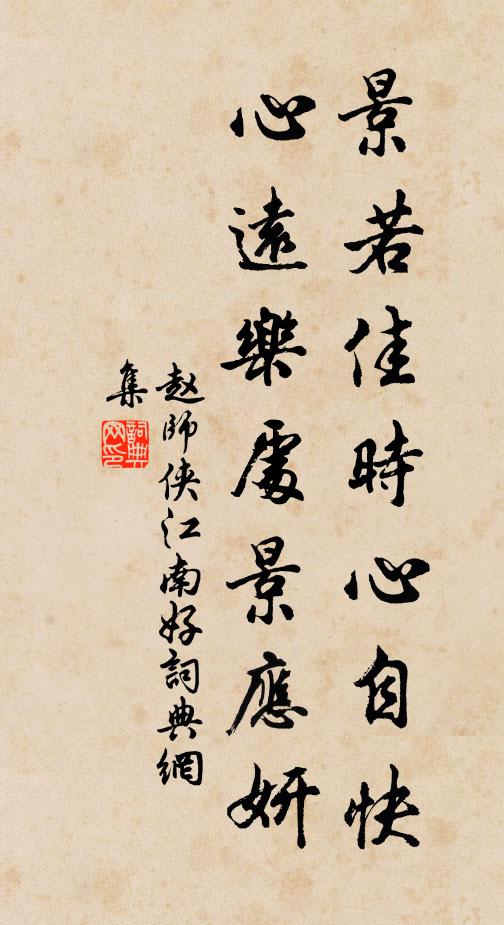 景若佳時心自快
心遠樂處景應妍
趙師俠江南好詞典網
集
詞典
网印